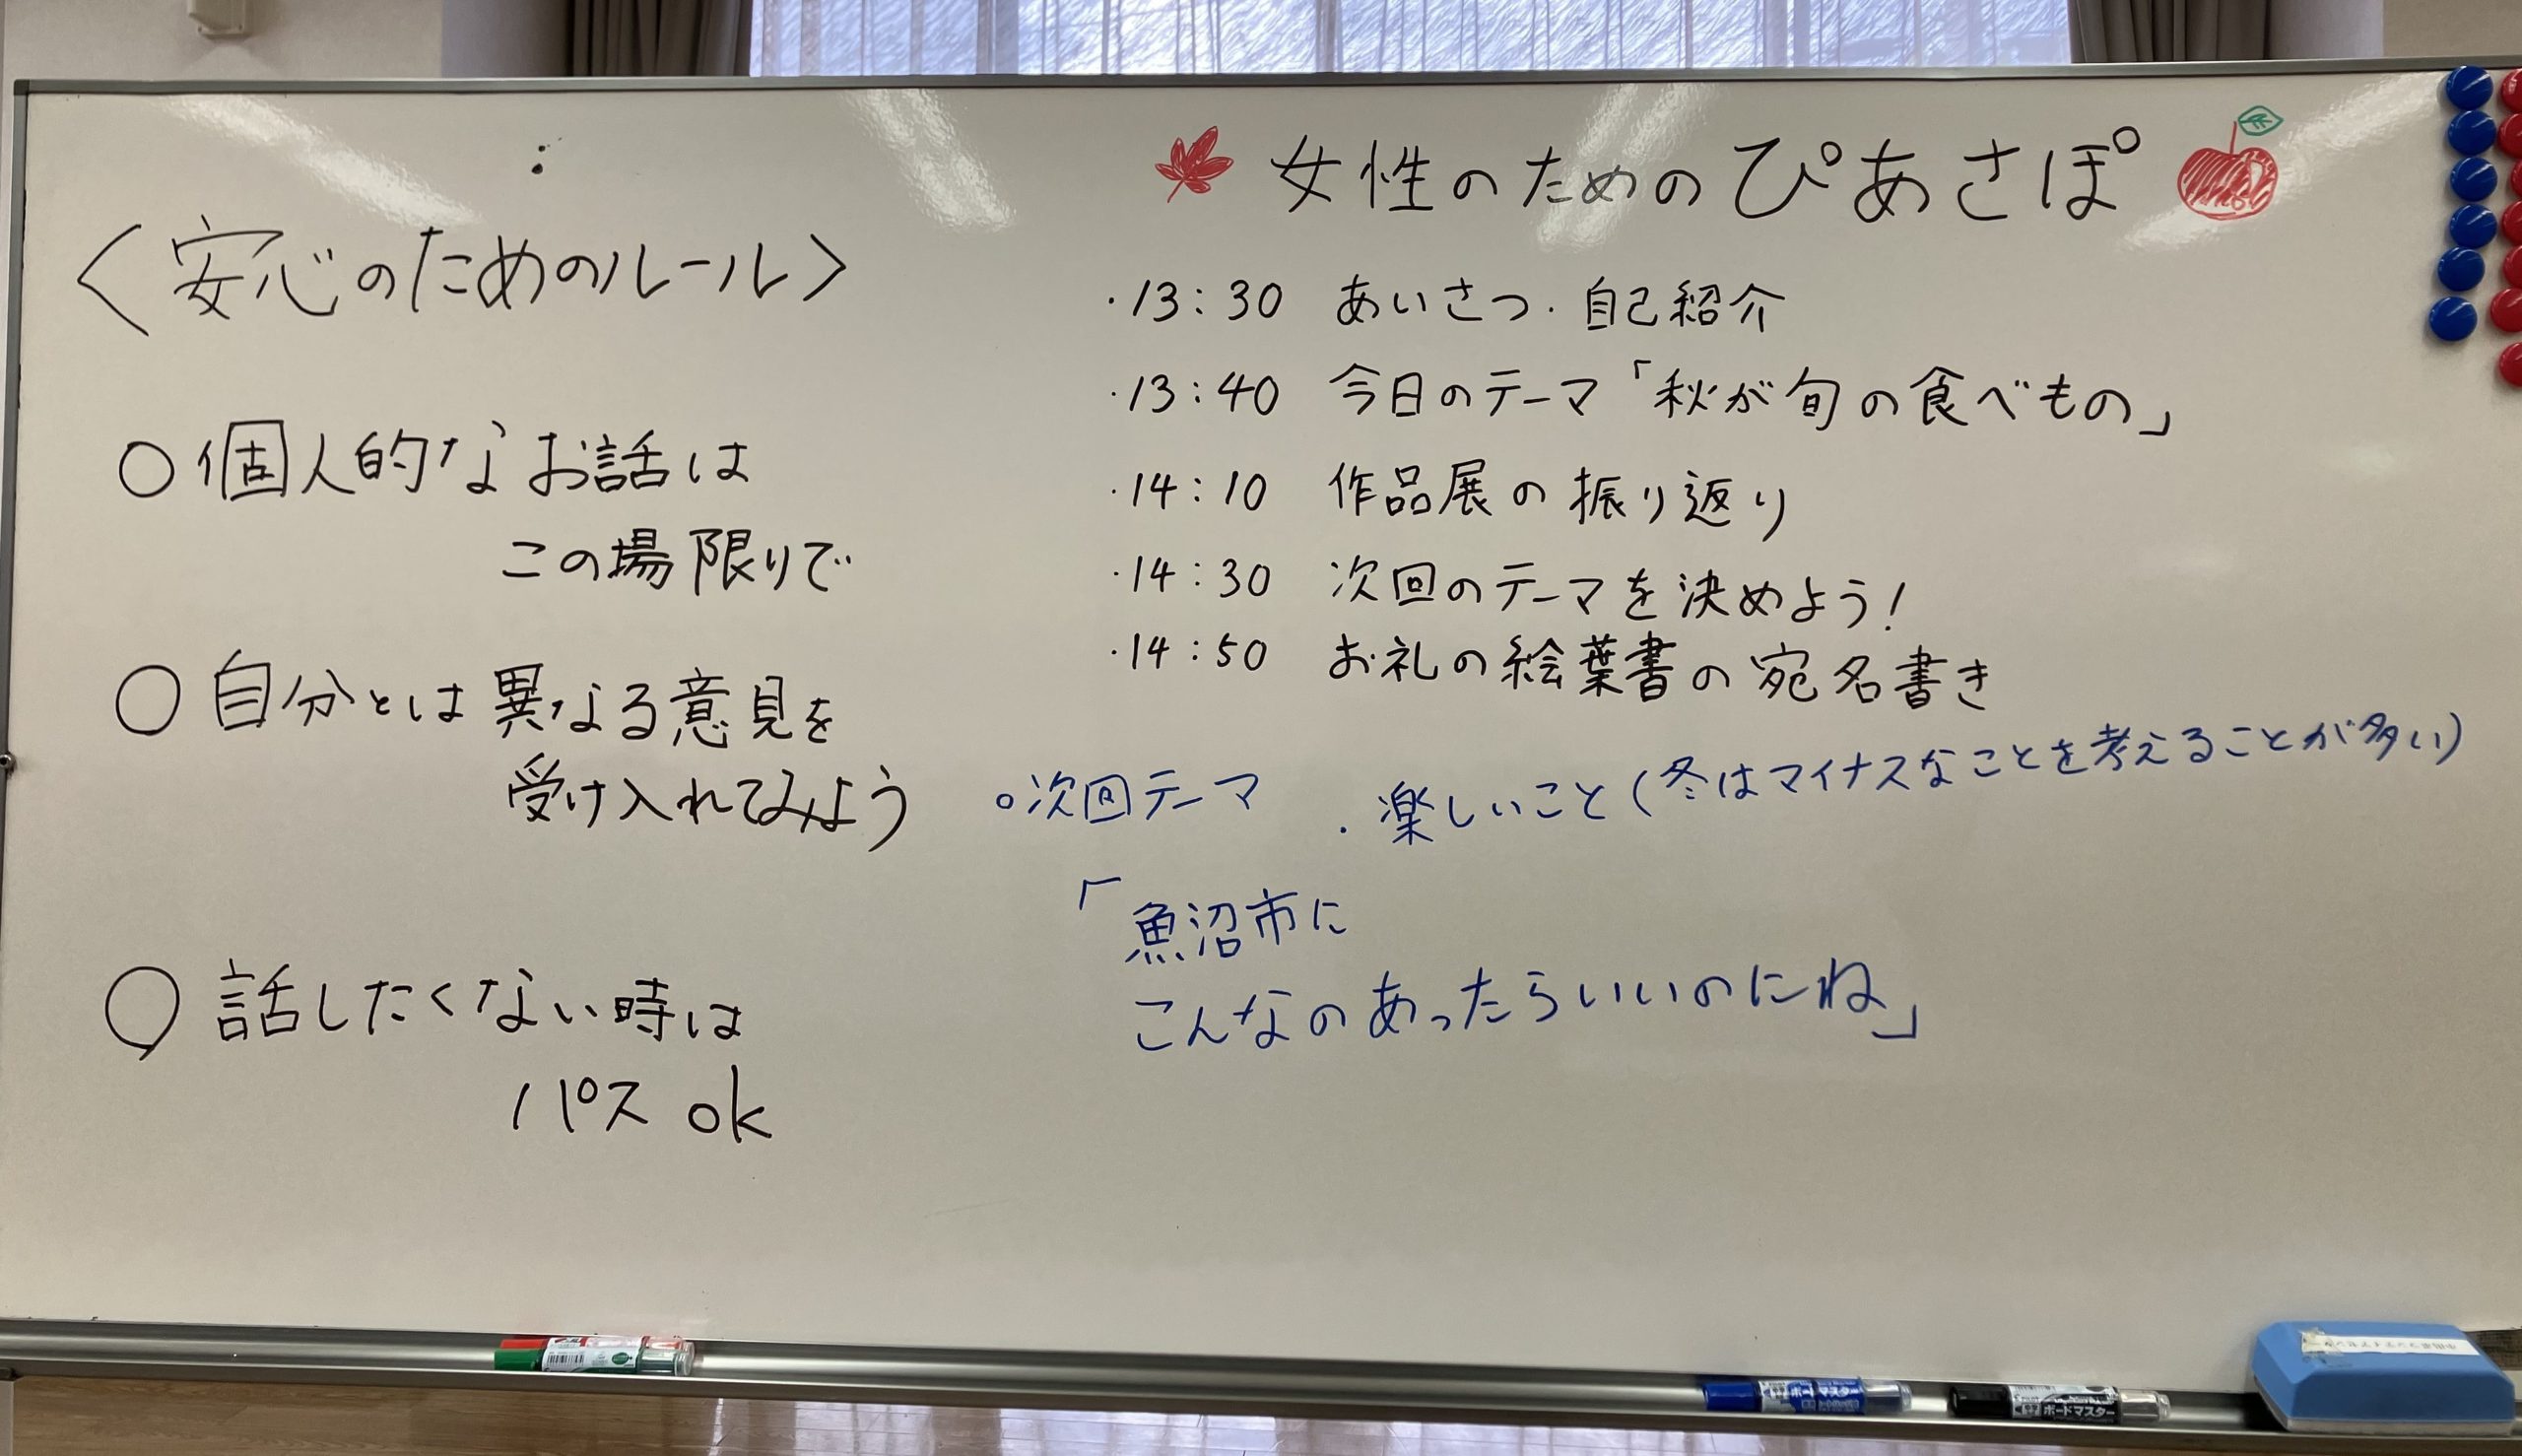 女性のためのぴあさぽ
<安心のためのルール>
○個人的なお話は
この場限りで
○自分とは異なる意見を
受け入れてみよう
○話したくない時は
パスok
・13:30 あいさつ・自己紹介
・13:40 今日のテーマ「秋が旬の食べもの」
・14:10 作品展の振り返り
・14:30 次回のテーマを決めよう!
・14:50 お礼の絵葉書の宛名書き
○次回テーマ ・楽しいこと(冬はマイナスなことを考えることが多い)
「魚沼市に
こんなのあったらいいのにね」
ボードマスター
ボードマスター